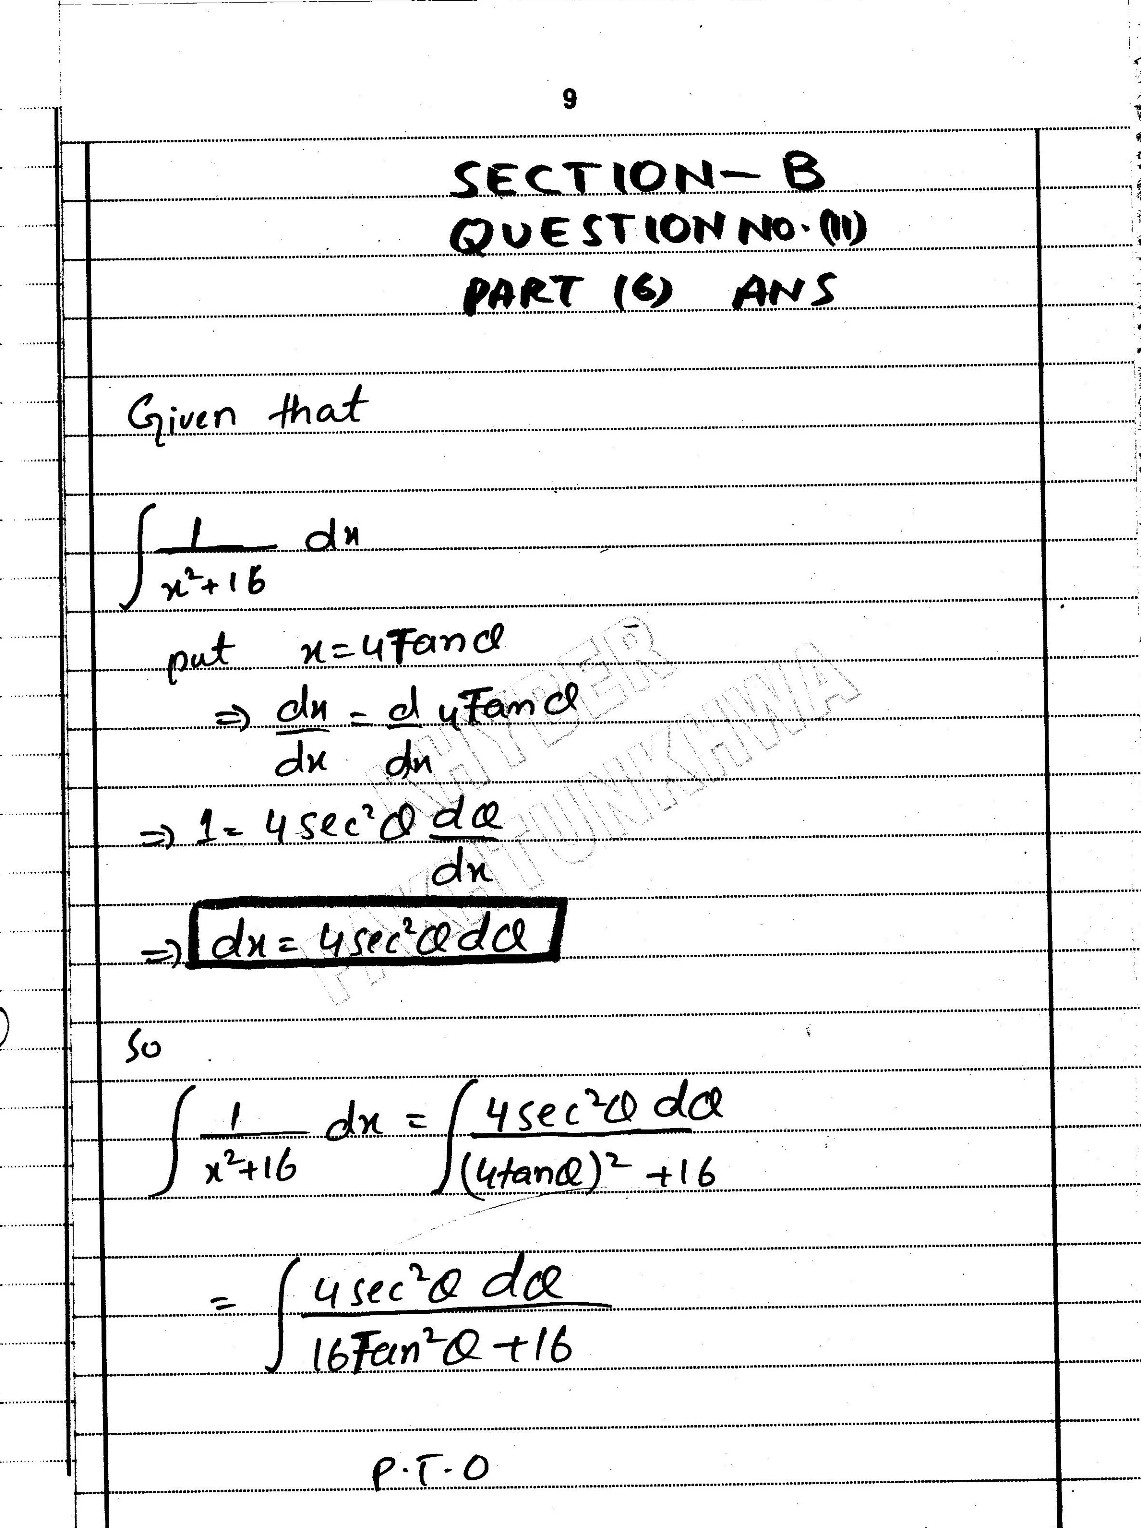 9
SECTION – B
QUESTION NO. (11)
PART (6) ANS
Given that
∫ 1/(x²+16) dx
put x = 4Tanθ
⇒ dx/dx = d/dx 4Tanθ
⇒ 1 = 4sec²θ dθ/dx
⇒ dx = 4sec²θdθ
So
∫ 1/(x²+16) dx = ∫ 4sec²θ dθ/((4tanθ)² +16)
= ∫ 4sec²θ dθ/(16Tan²θ +16)
P.T.O
KHYBER
PAKHTUNKHWA